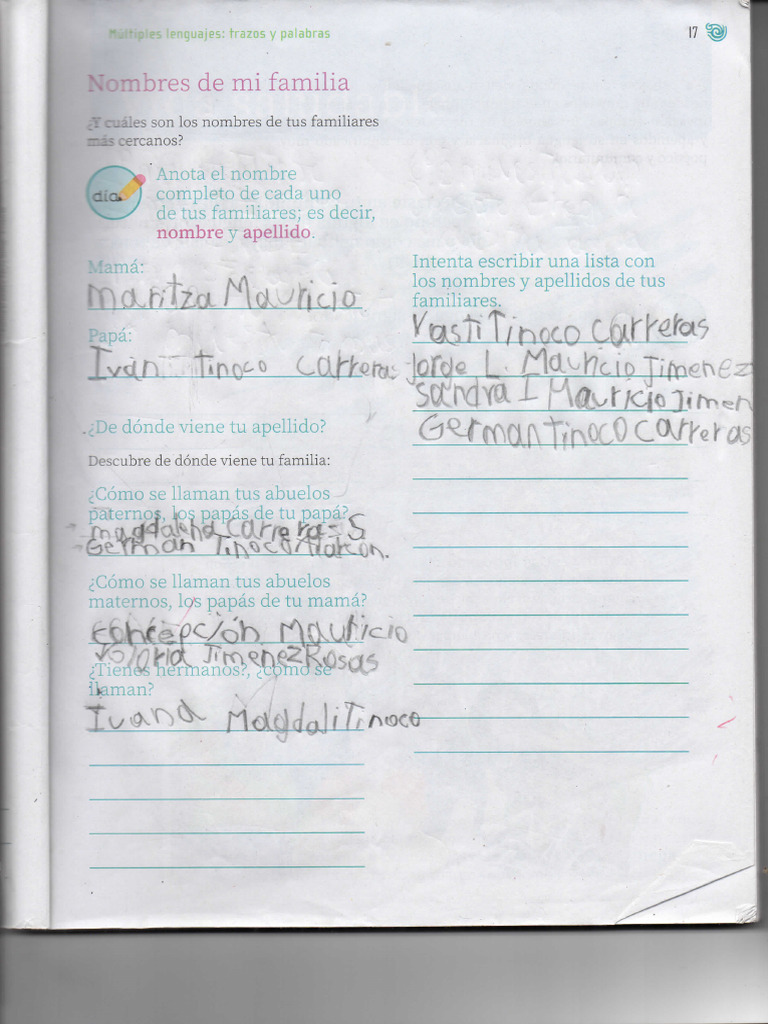 Múltiples lenguajes: trazos y palabras
17
Nombres de mi familia
¿Y cuáles son los nombres de tus familiares
más cercanos?
día
Anota el nombre
completo de cada uno
de tus familiares; es decir,
nombre y apellido.
Mamá:
Maritza Mauricio
Papá:
Ivan Tinoco Carreras
¿De dónde viene tu apellido?
Descubre de dónde viene tu familia:
¿Cómo se llaman tus abuelos
paternos, los papás de tu papá?
magdalena Carrera S
German Tinoco Alarcon.
¿Cómo se llaman tus abuelos
maternos, los papás de tu mamá?
Concepción Mauricio
y Gloria Jimenez Rosas
¿Tienes hermanos?, ¿cómo se
llaman?
Ivana Magdali Tinoco
Intenta escribir una lista con
los nombres y apellidos de tus
familiares.
Vasti Tinoco Carreras
Jorge L. Mauricio Jimenez
Sandra I Mauricio Jimen
German Tinoco Carreras